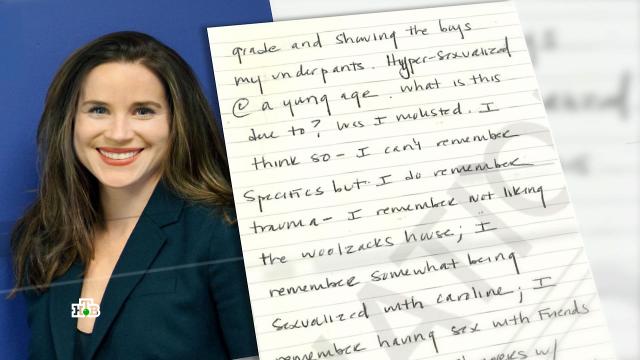 grade and shaving the boys
my underpants. Hyper-sexualized
@ a yung age. what is this
due to? was I molested. I
think so - I can't remember
specifics but I do remember
trauma - I remember not liking
the woolzacks house; I
remember somewhat being
sexualized with caroline; I
remember having sex with friends
w/
НТВ